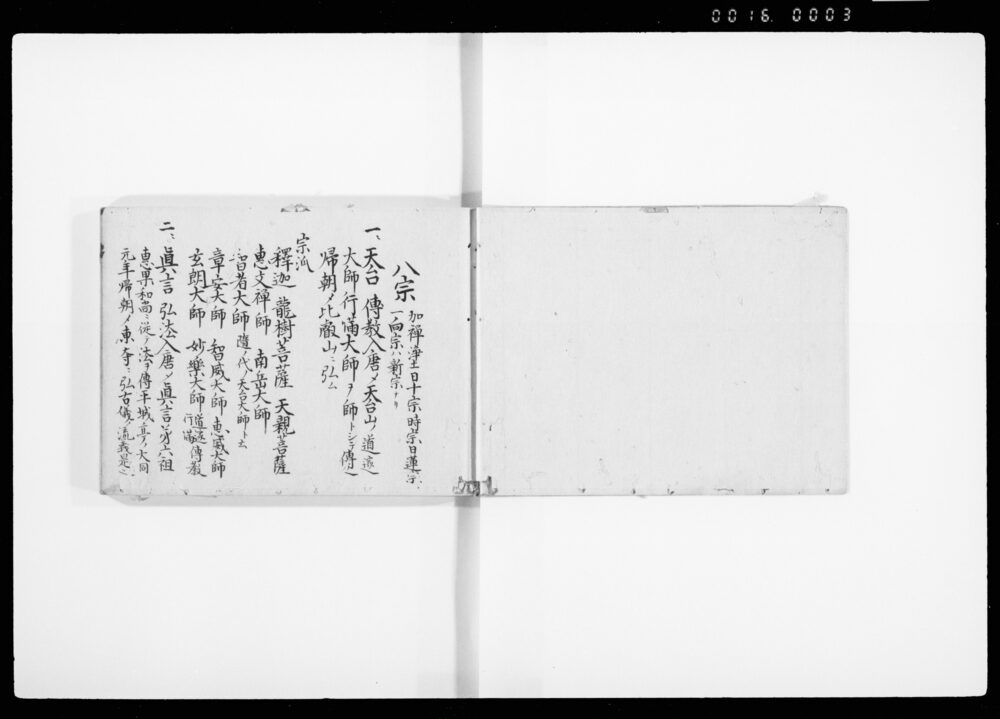 0016.0003
八宗 加禪淨土曰十宗時宗日蓮宗
一向宗ハ新宗ナリ
一、天台 傳教入唐メ天台山ノ道邃
大師行滿大師ヲ師トシテ傳
帰朝メ比叡山ニ弘ム
宗派
釋迦 龍樹菩薩 天親菩薩
惠文禅師 南岳大師
智者大師 隨ノ代ノ天台大師ト云
章安大師 智威大師 惠威大師
玄朗大師 妙樂大師 道邃 行滿 傳教
二、眞言 弘法入唐メ眞言第六祖
惠果和尚ニ従テ法ヲ傳平城 大同
元年帰朝メ東寺ニ弘 流義是